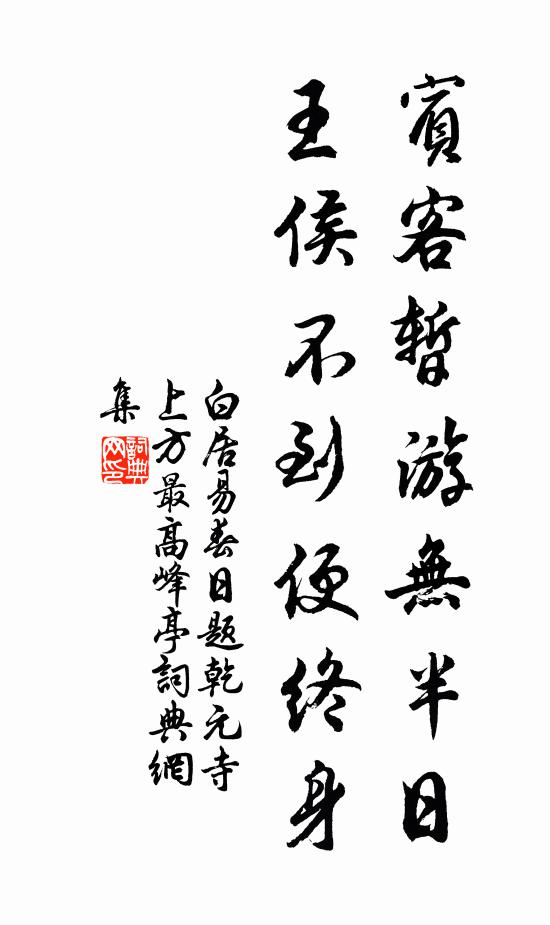 賓客暫游無半日
王侯不到便終身
白居易春日題乾元寺
上方最高峰亭詞典網
集
詞典
网印